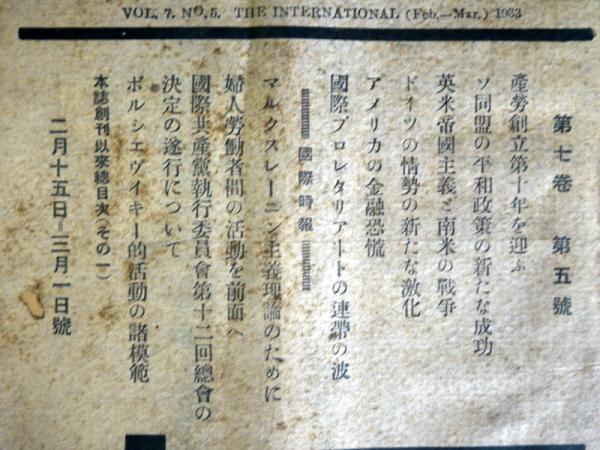 VOL. 7. NO. 5. THE INTERNATIONAL (Feb.—Mar.) 1933
第七卷 第五號
產勞創立第十年を迎ふ
ソ同盟の平和政策の新たな成功
英米帝國主義と南米の戰爭
ドイツの情勢の新たな激化
アメリカの金融恐慌
國際プロレタリアートの連帶の波
國際時報
マルクスレーニン主義理論のために
婦人勞働者間の活動を前面へ
國際共產黨執行委員會第十二回總會の
決定の遂行について
ボルシエヴイキー的活動の諸模範
本誌創刊以來總目次(その一)
二月十五日=三月一日號